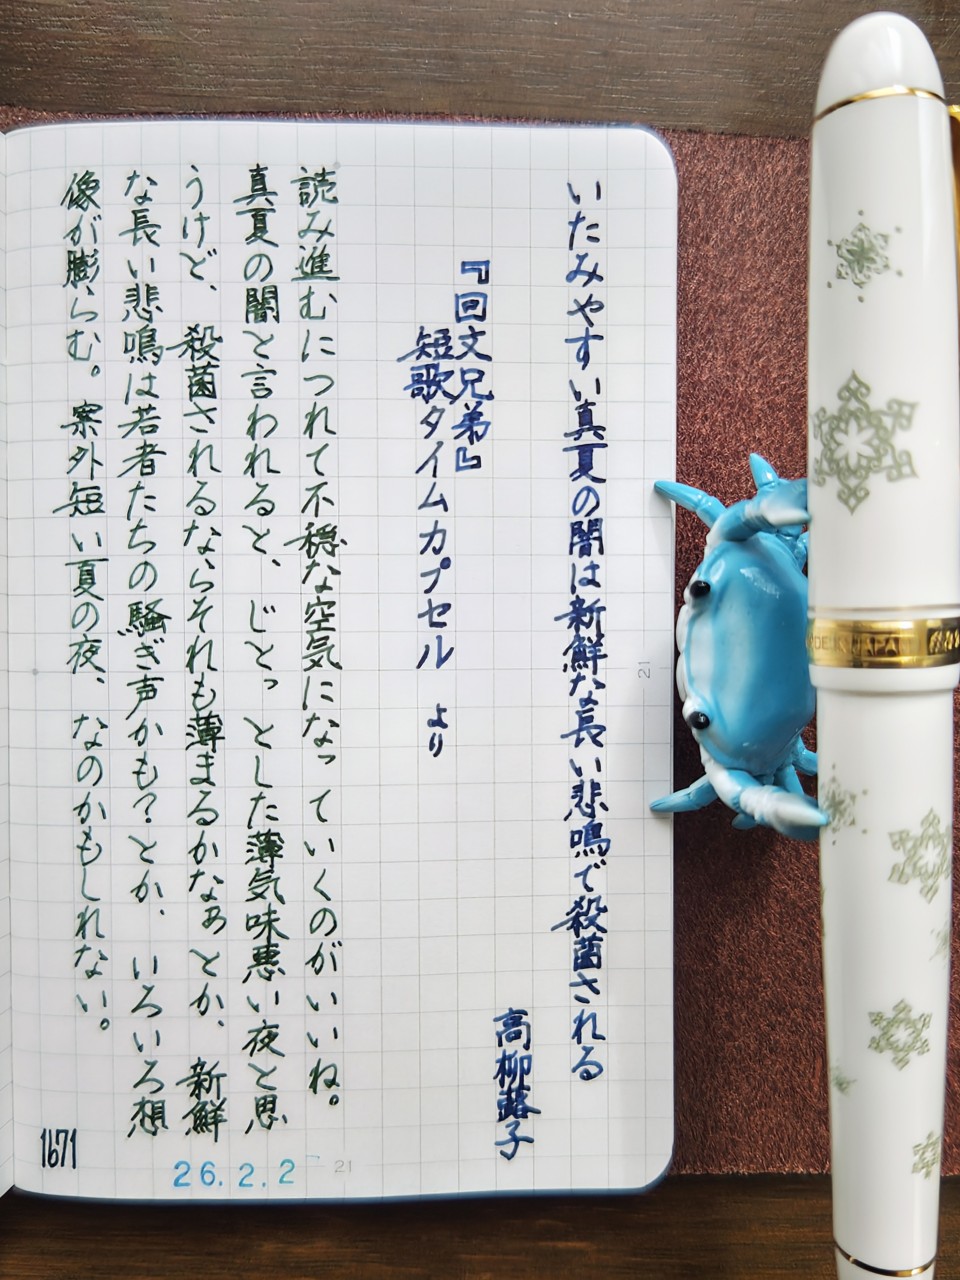 いたみやすい真夏の闇は新鮮な長い悲鳴で殺菌される
高柳蕗子
『回文兄弟』
短歌タイムカプセル より
読み進むにつれて不穏な空気になっていくのがいいね。
真夏の闇と言われると、じとっとした薄気味悪い夜と思
うけど、殺菌されるならそれも薄まるかなぁとか、新鮮
な長い悲鳴は若者たちの騒ぎ声かも?とか、いろいろ想
像が膨らむ。案外短い夏の夜、なのかもしれない。
1671
26.2.2
21
21
JAPAN